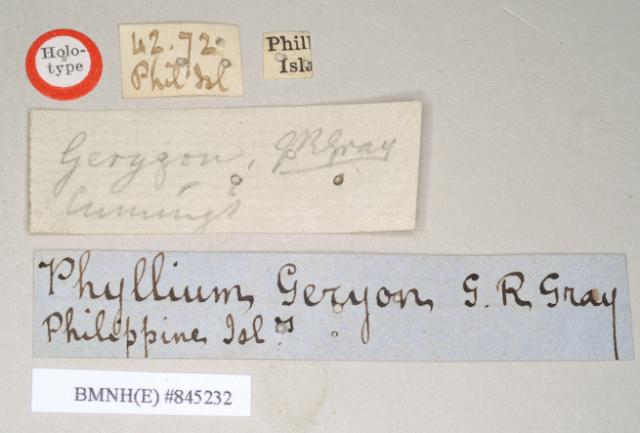 Holo-
type
42.72.
Phil Isl
Phill
Isla
Geryon, G R Gray
Cuming's
Phyllium Geryon G. R Gray
Philippine Isl.ds
BMNH(E) #845232